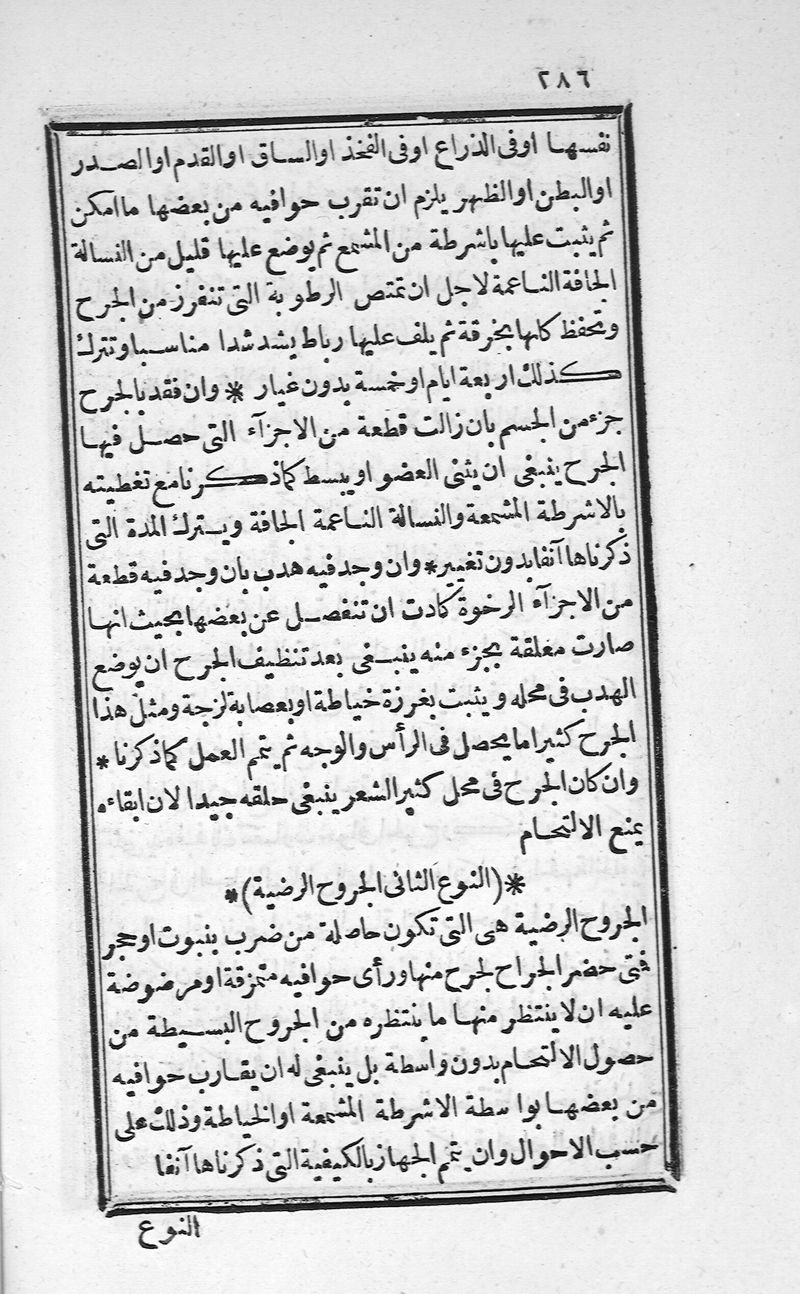 ٢٨٦
نفسها او فى الذراع او فى الفخذ او الساق او القدم او الصدر
او البطن او الظهر يلزم ان تقرب حوافيه من بعضها ما امكن
ثم يثبت عليها باشرطة من المشمع ثم يوضع عليها قليل من النسالة
الجافة الناعمة لاجل ان تمتص الرطوبة التى تنفرز من الجرح
وتحفظ كلها بخرقة ثم يلف عليها رباط يشد شدا مناسبا وتترك
كذلك اربعة ايام او خمسة بدون غيار * وان فقد بالجرح
جزء من الجسم بان زالت قطعة من الاجزآء التى حصل فيها
الجرح ينبغى ان يثنى العضو او يبسط كما ذكرنا مع تغطيته
بالاشرطة المشمعة والنسالة الناعمة الجافة ويترك المدة التى
ذكرناها آنفا بدون تغيير * وان وجد فيه هدب بان وجد فيه قطعة
من الاجزآء الرخوة كادت ان تنفصل عن بعضها بحيث انها
صارت معلقة بجزء منه ينبغى بعد تنظيف الجرح ان يوضع
الهدب فى محله ويثبت بغرزة خياطة او بعصابة لزجة ومثل هذا
الجرح كثيرا ما يحصل فى الرأس والوجه ثم يتمم العمل كما ذكرنا *
وان كان الجرح فى محل كثير الشعر ينبغى حلقه جيدا لان ابقاءه
يمنع الالتحام
* (النوع الثانى الجروح الرضية) *
الجروح الرضية هى التى تكون حاصلة من ضرب بنبوت او حجر
فتى حضر الجراح لجرح منها ورأى حوافيه متمزقة او مرضوضة
عليه ان لا ينتظر منها ما ينتظره من الجروح البسيطة من
حصول الالتحام بدون واسطة بل ينبغى له ان يقارب حوافيه
من بعضها بواسطة الاشرطة المشمعة او الخياطة وذلك على
حسب الاحوال وان يتمم الجهاز بالكيفية التى ذكرناها آنفا
النوع